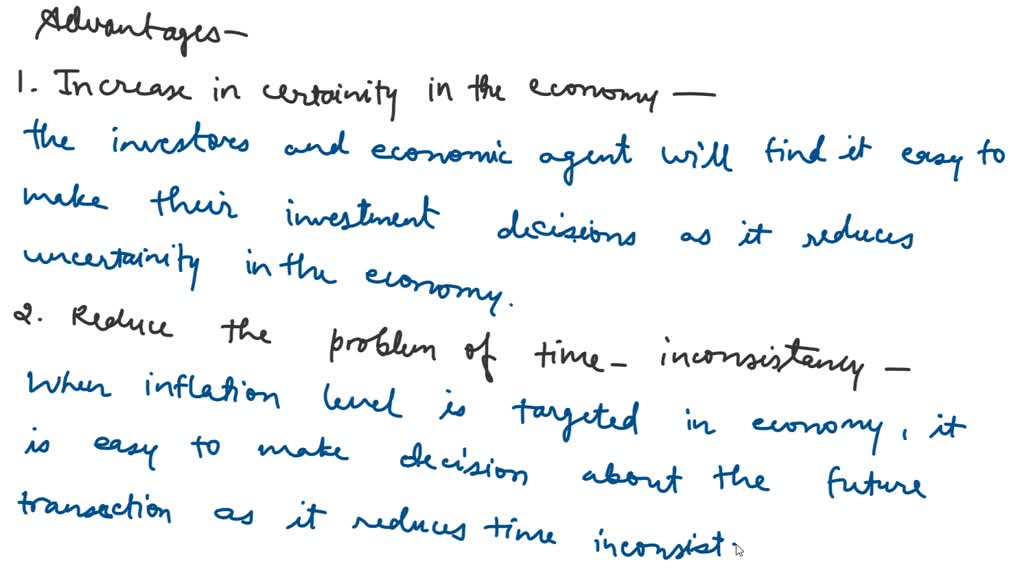 Advantages-
1. Increase in certainity in the economy -
the investors and economic agent will find it easy to
make their investment decisions as it reduces
uncertainity in the economy.
2. Reduce the problem of time- inconsistancy -
When inflation level is targeted in economy, it
is easy to make decision about the future
transaction as it reduces time inconsist.